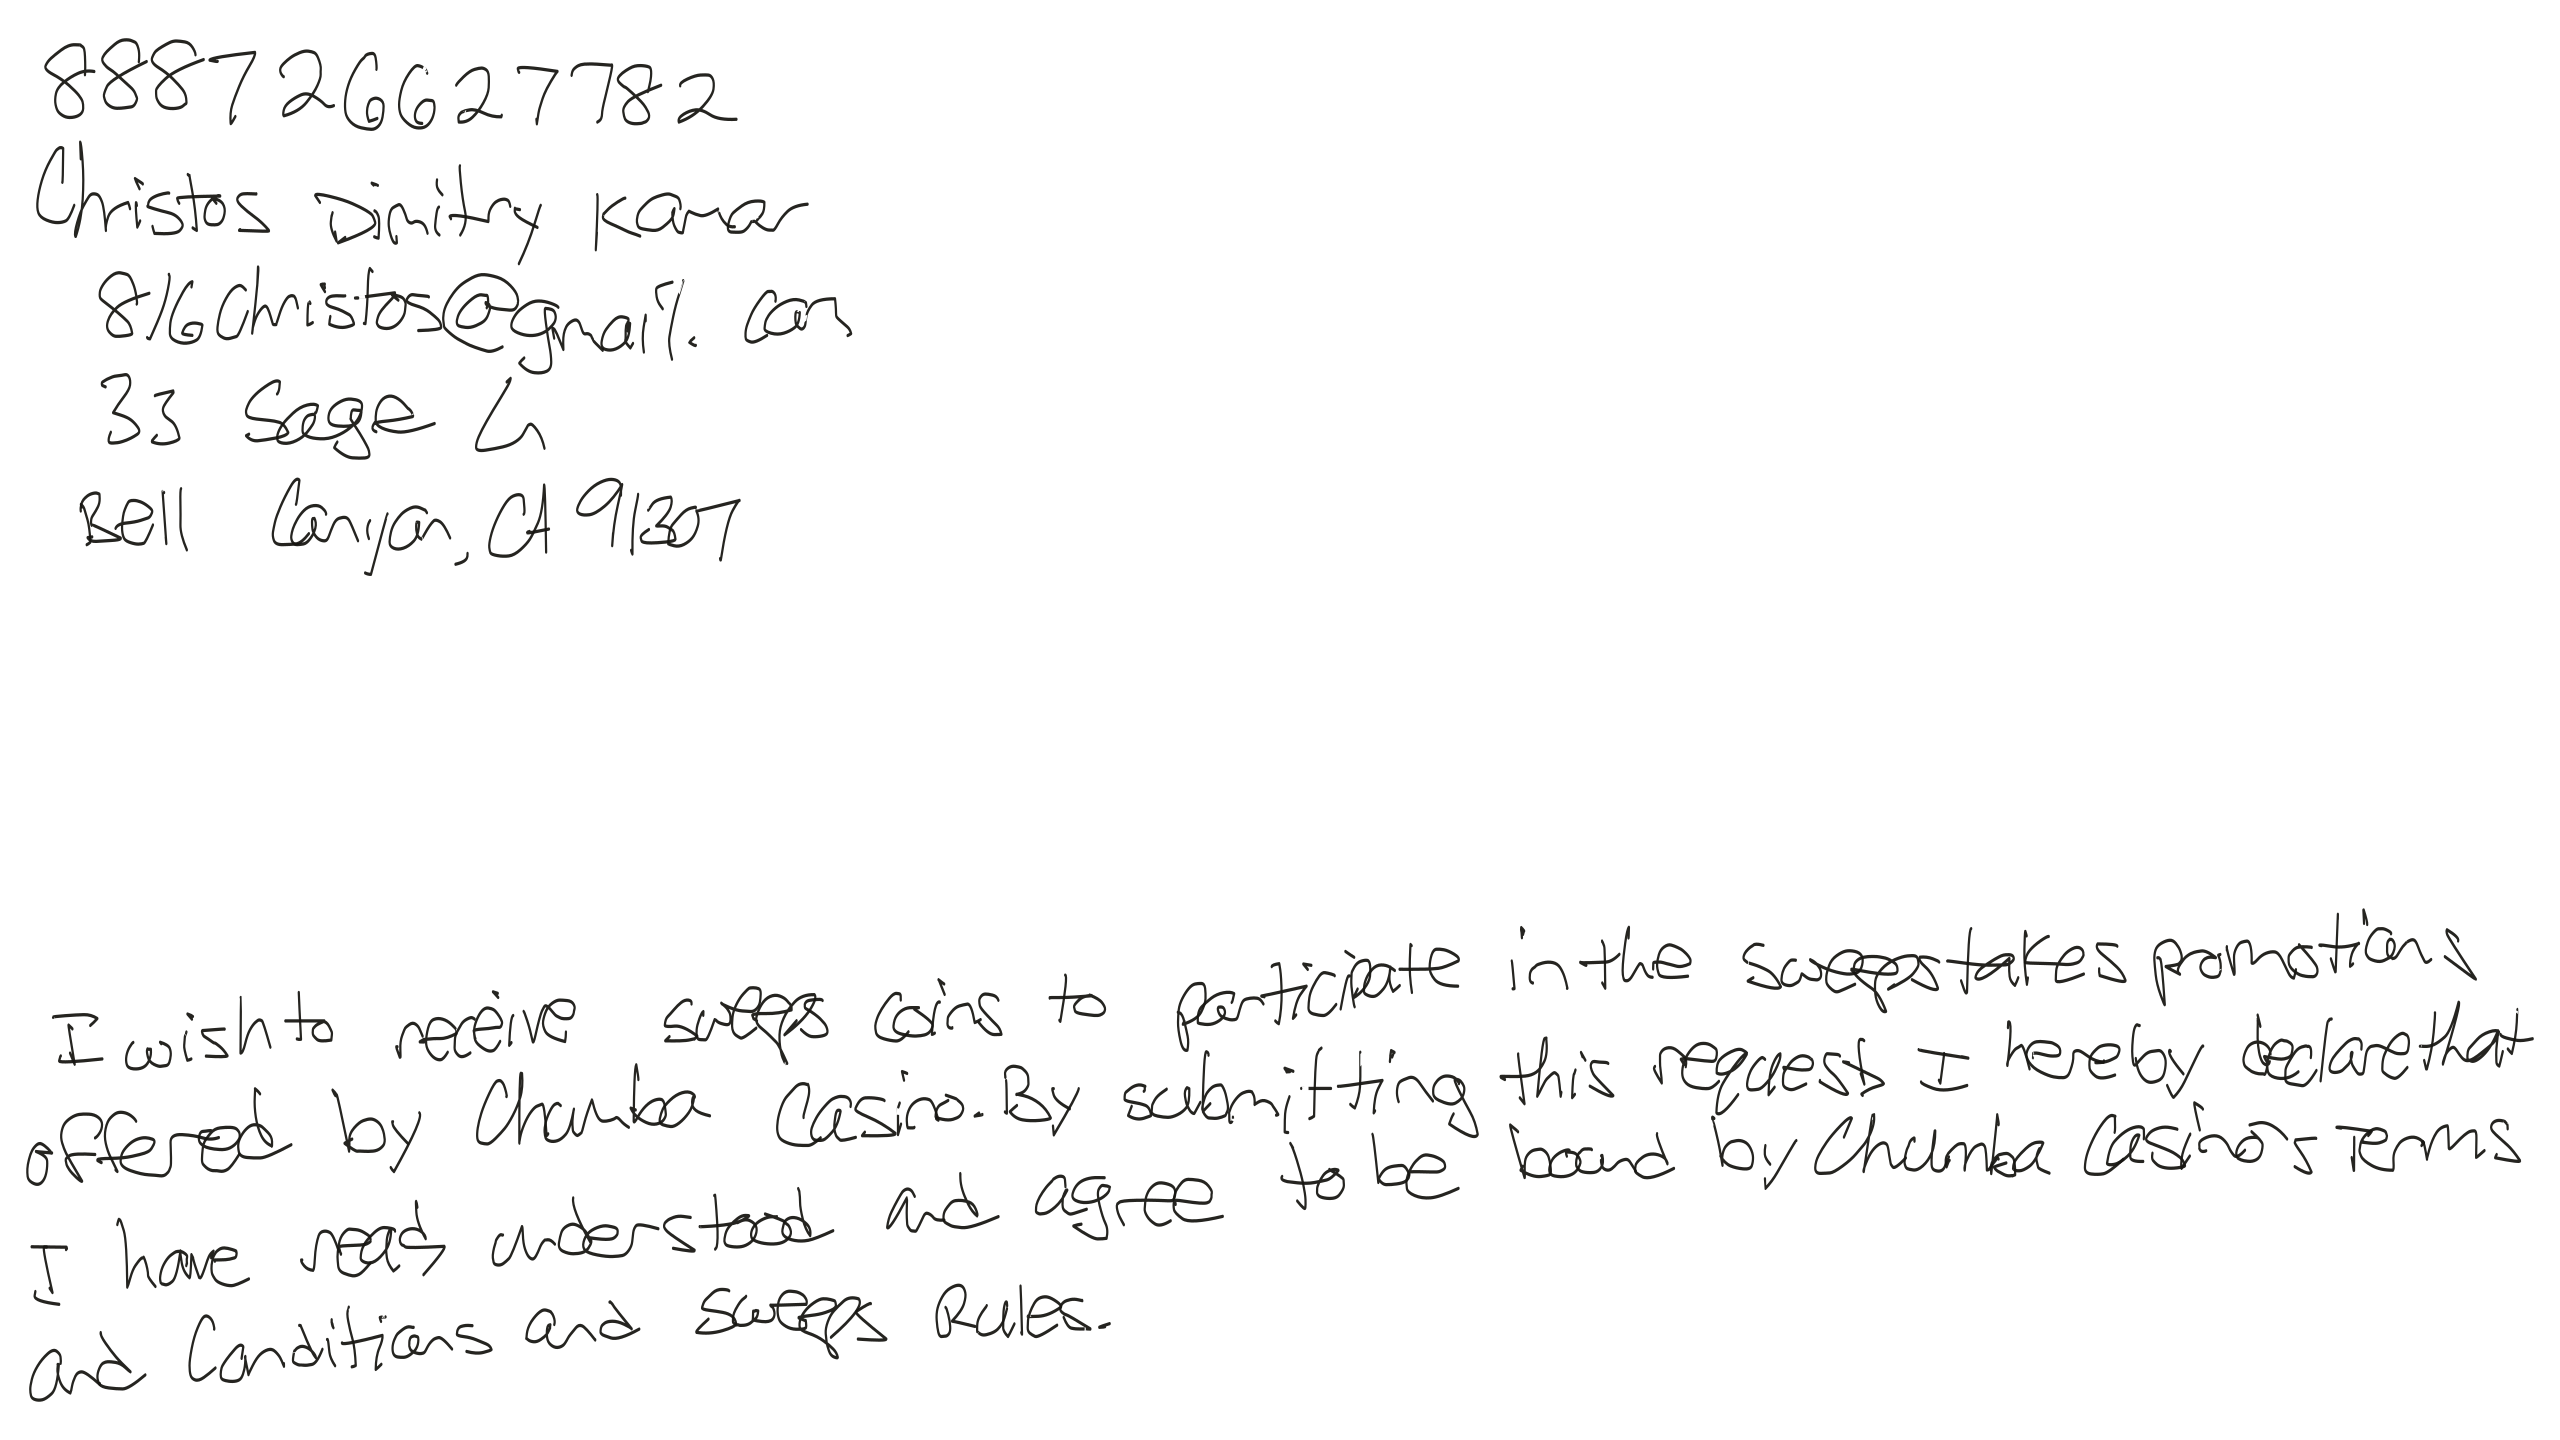 888726627782
Christos Dimitry Kamar
816Christos@gmail.com
33 Sage Ln
Bell Canyon, CA 91307
I wish to receive sweeps coins to participate in the sweepstakes promotions
offered by Chumba Casino. By submitting this request I hereby declare that
I have read understood and agree to be bound by Chumba Casino's Terms
and Conditions and Sweeps Rules.